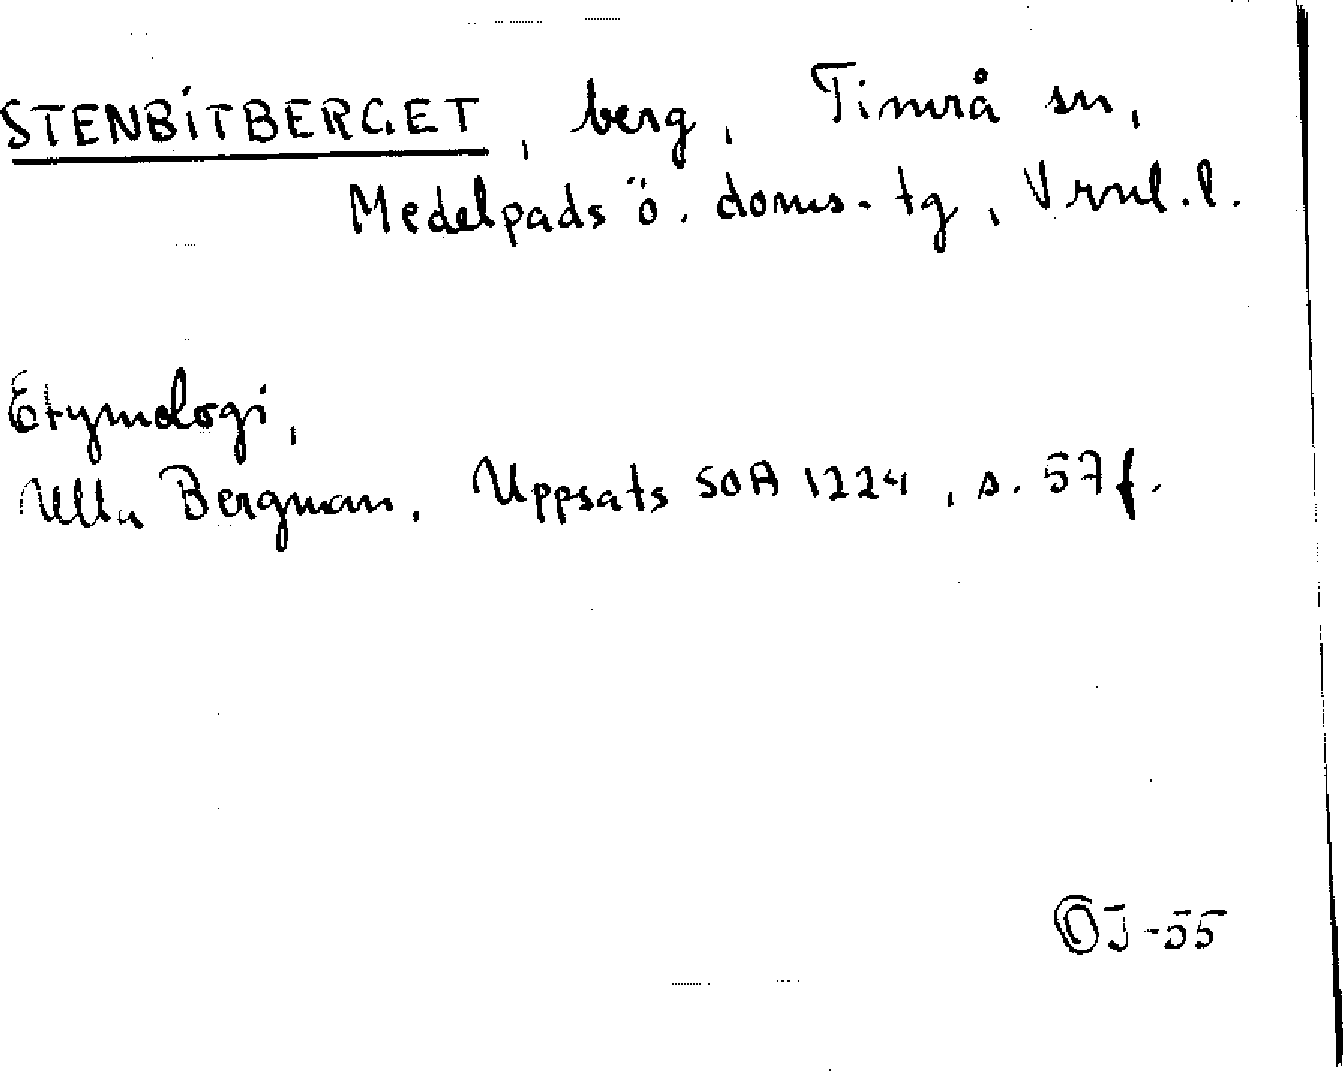 STENBITBERGET, berg, Timrå sn,
Medelpads ö. doms.tg, Vrnl.l.
Etymologi,
Ulla Bergman. Uppsats SOA 1224, s. 57f.
OJ-55